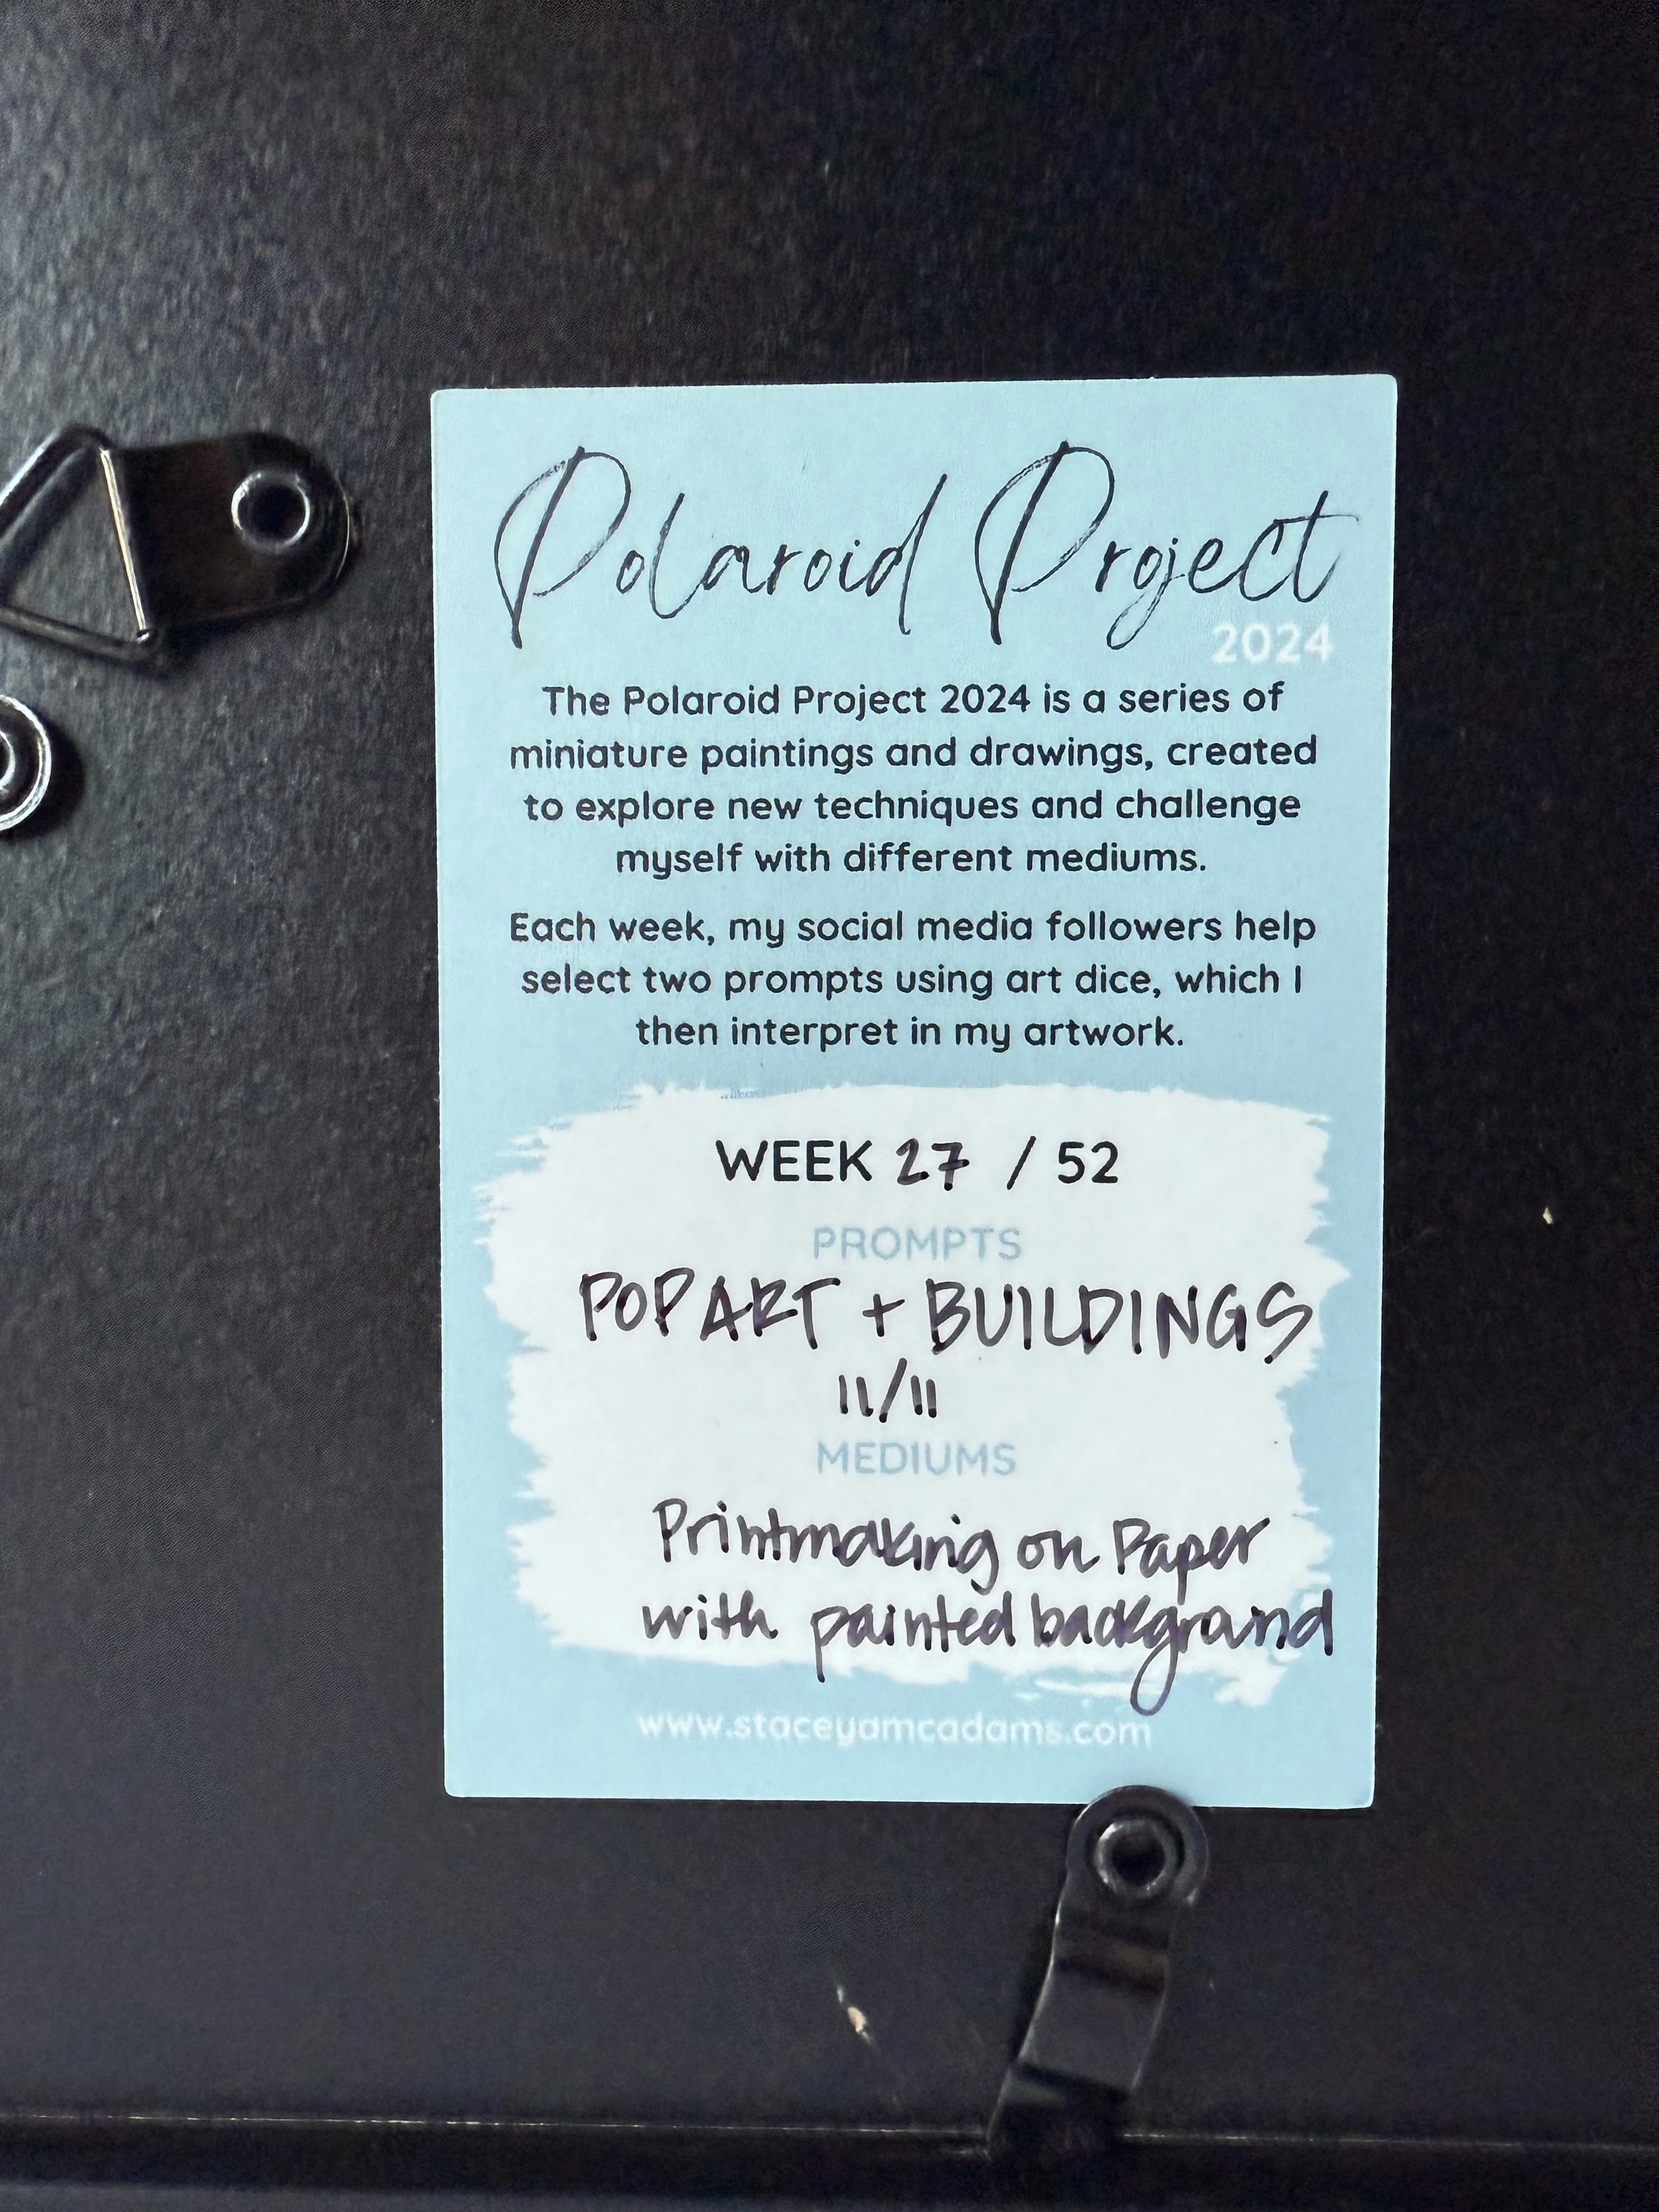 Polaroid Project
2024
The Polaroid Project 2024 is a series of
miniature paintings and drawings, created
to explore new techniques and challenge
myself with different mediums.
Each week, my social media followers help
select two prompts using art dice, which I
then interpret in my artwork.
WEEK 27 / 52
PROMPTS
POP ART + BUILDINGS
11/11
MEDIUMS
Printmaking on Paper
with painted background
www.staceyamcadams.com